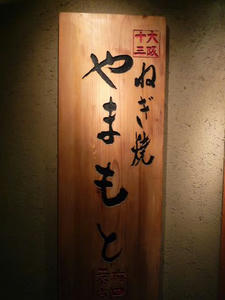 大阪
十三
ねぎ焼
やまもと